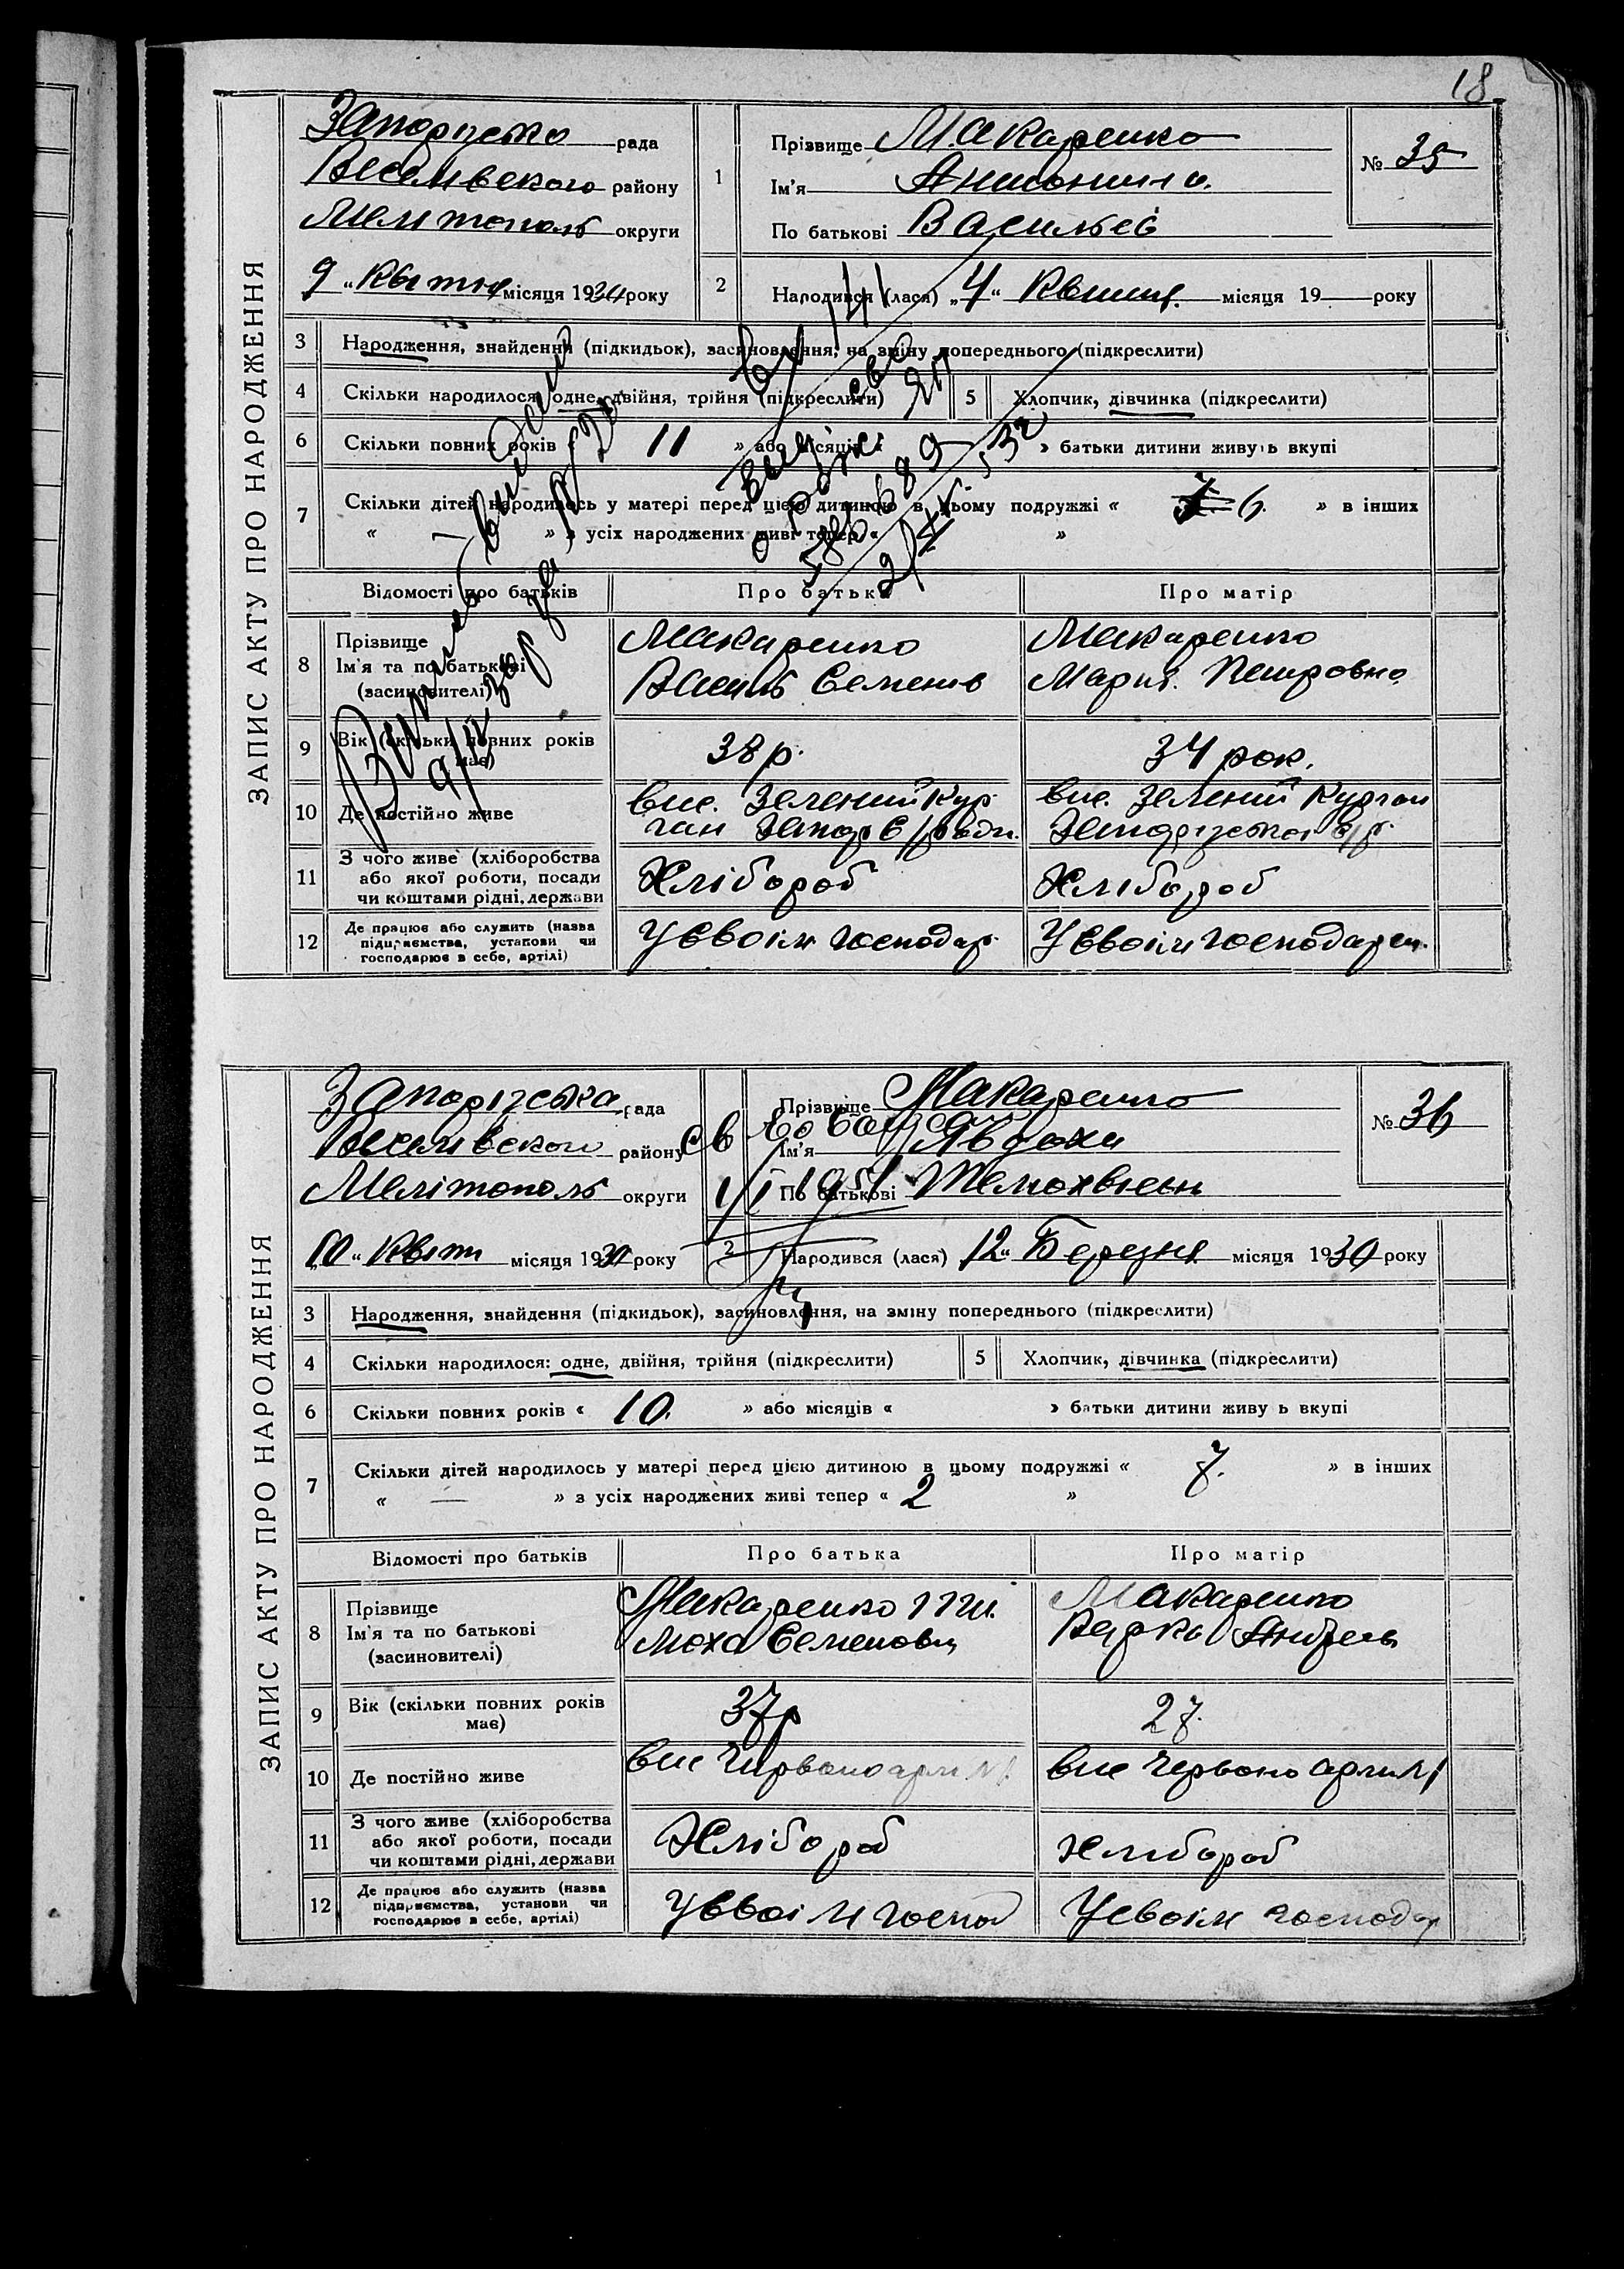 18
ЗАПИС АКТУ ПРО НАРОДЖЕННЯ
Запорізька рада
Веселівского району
Мелитополь округи
9 „ Квітня місяця 1930 року
1
Прізвище Макаренко
Ім'я Антонина
По батькові Васильев
№ 35
2
Народився (лася) „4“ Квітня місяця 19 року
3 Народження, знайдення (підкидьок), засиновлення, на зміну попереднього (підкреслити)
4 Скільки народилося: одне, двійня, трійня (підкреслити) 5 Хлопчик, дівчинка (підкреслити)
6 Скільки повних років 11 » або місяців « » батьки дитини живуть вкупі
7 Скільки дітей народилось у матері перед цією дитиною в цьому подружжі « 6. » в інших
« — » з усіх народжених живі тепер « »
Відомості про батьків Про батька Про матір
8 Прізвище Ім'я та по батькові (засиновителі)
Макаренко Макаренко
Василь Семенів Мария Петровна
9 Вік (скільки повних років має) 38 р. 34 рок.
10 Де постійно живе
вис. Зелений Кур вис. Зелений Курган
ган Запор с/ради. Запорізької с/р.
11 З чого живе (хліборобства
або якої роботи, посади
чи коштами рідні, держави
Хлібороб Хлібороб
12 Де працює або служить (назва
підприємства, установи чи
господарює в себе, артілі)
У своїм господар. У своїм господарст.
ЗАПИС АКТУ ПРО НАРОДЖЕННЯ
Запорізька рада
Веселівского району
Мелітополь округи
„10“ Квітн місяця 1930 року
Прізвище Макаренко
Ім'я Явдоха
По батькові Темохвіевн
№ 36
2
Народився (лася) 12“ Березня місяця 1930 року
3 Народження, знайдення (підкидьок), засиновлення, на зміну попереднього (підкреслити)
4 Скільки народилося: одне, двійня, трійня (підкреслити) 5 Хлопчик, дівчинка (підкреслити)
6 Скільки повних років « 10. » або місяців « » батьки дитини живуть вкупі
7 Скільки дітей народилось у матері перед цією дитиною в цьому подружжі « 7. » в інших
« — » з усіх народжених живі тепер « 2 »
Відомості про батьків Про батька Про матір
8 Прізвище
Ім'я та по батькові
(засиновителі)
Макаренко Ти Макаренко
моха Семенович Варка Андреев
9 Вік (скільки повних років має) 37р 27.
10 Де постійно живе вис Червоно арм вис Червоно арм
11 З чого живе (хліборобства
або якої роботи, посади
чи коштами рідні, держави
Хлібороб Хлибороб
12 Де працює або служить (назва
підприємства, установи чи
господарює в себе, артілі)
У своїм господ У своїм господар